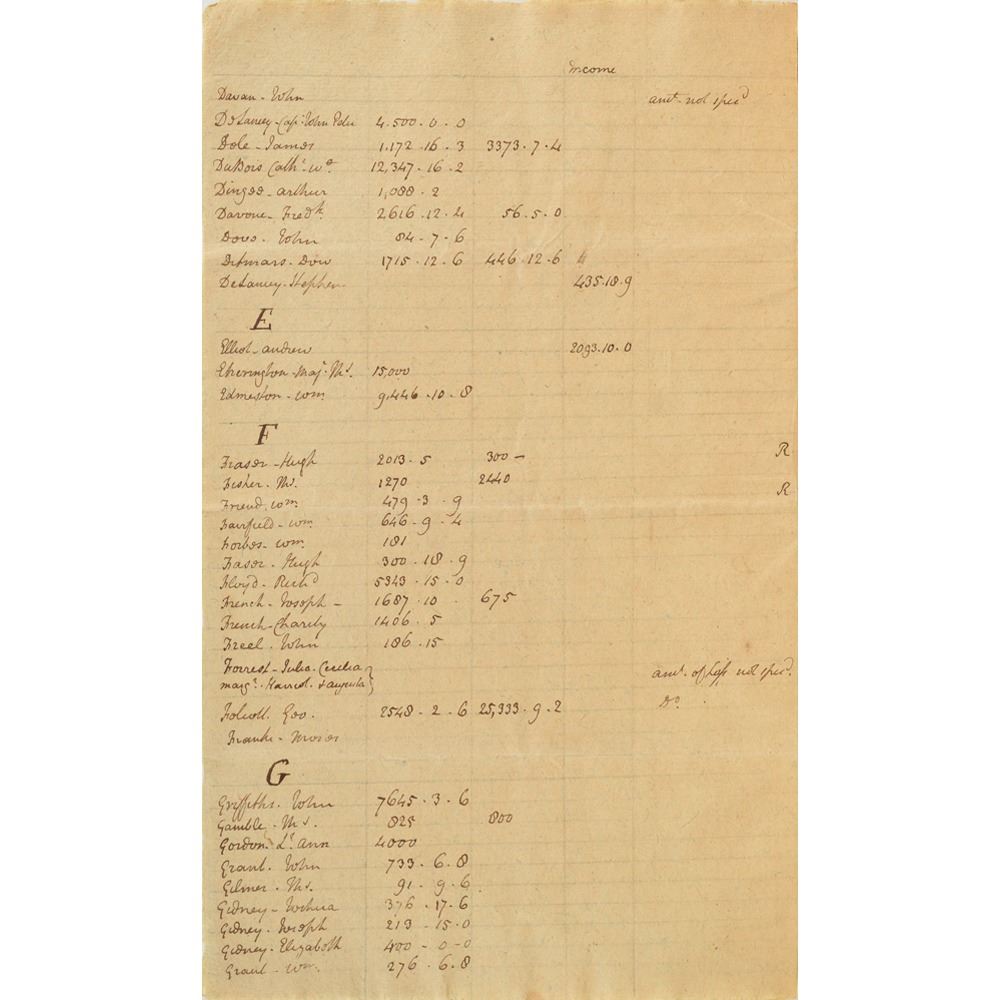 Income
Davan - John amt. not specd
DeLancey - Cap: John Peter 4.500 . 0 . 0
Dole - James 1.172 . 16 . 3 3373 . 7 . 4
DuBois Cath: wo. 12,347 . 16 . 2
Dingee - arthur 1,088 . 2
Davoue - Fredk. 2616 . 12 . 4 56 . 5 . 0
Dove - John 84 . 7 . 6
Ditmars - Dow 1715 . 12 . 6 446 . 12 . 6
DeLancey - Stephen 435.18.9
E
Elliot - andrew 2093.10.0
Etherington - Maj. Ths. 15,000
Edmeston - Wm 9,446 . 10 . 8
F
Fraser - Hugh 2013 . 5 300 - R
Fisher. Ths. 1270 2440
Friend. Wm. 479 . 3 . 9 R
Fairfield - Wm. 646 - 9 . 4
Forbes - Wm. 181
Fraser. Hugh 300 . 18 . 9
Floyd - Richd 5343 . 15 . 0
French - Joseph - 1687 . 10 . 675
French - Charity 1406 . 5
Freel. John 186 . 15
Forrest - Julia. Cecilia }
Margt. Harriot. & augusta } amt. of loss not specd.
Geo. 2548 . 2 . 6 25,333 . 9 . 2 Do.
Franks - Moses
G
Griffiths. John 7645 . 3 . 6
Gamble. Ths. 825 800
Gordon. Lt. Ann 4000
Grant. John 733 . 6 . 8
Gilmer. Ths. 91 . 9 . 6
Gidney - Joshua 376 . 17 . 6
Gidney - Joseph 213 . 15 . 0
Gidney. Elizabeth 400 - 0 - 0
Grant - Wm. 276 . 6 . 8